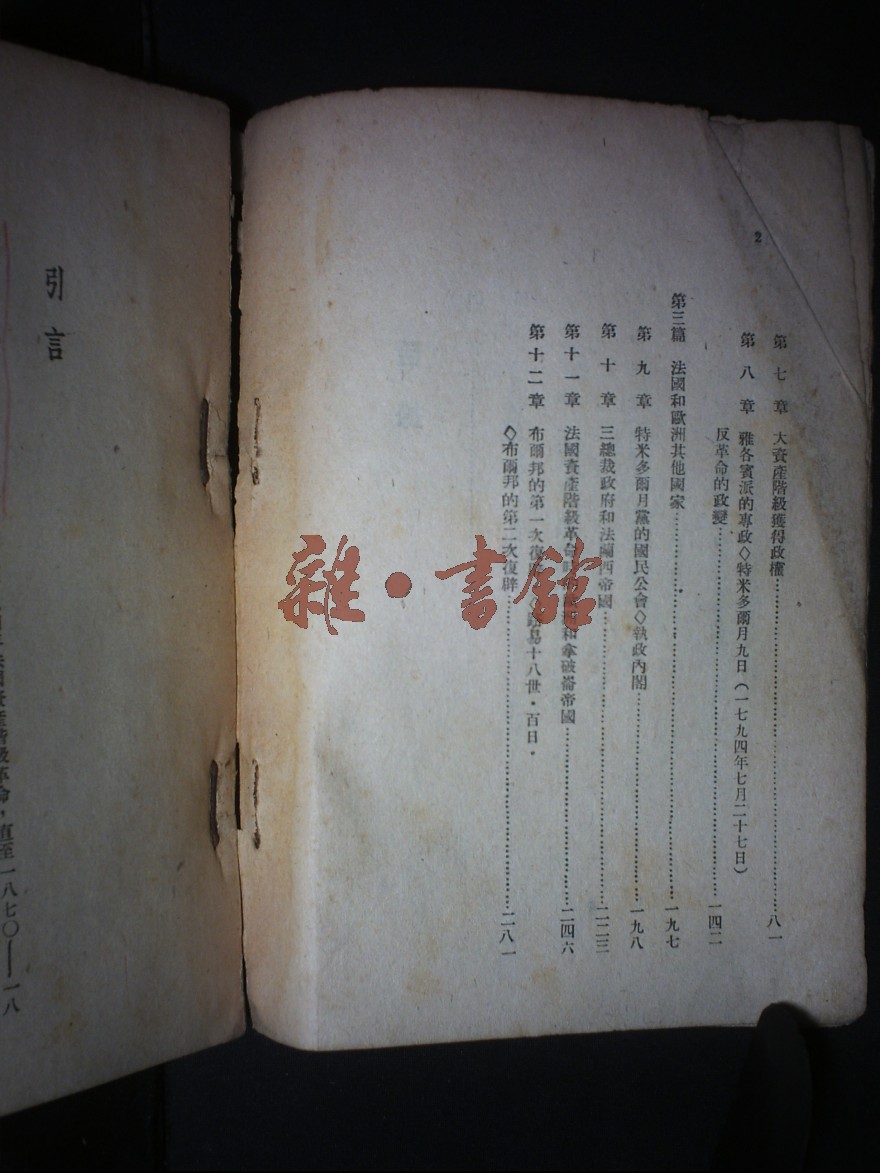 2
第七章 大資產階級獲得政權……八一
第八章 雅各賓派的專政◇特米多爾月九日(一七九四年七月二十七日)
反革命的政變……一四二
第三篇 法國和歐洲其他國家……一九七
第九章 特米多爾月黨的國民公會◇執政內閣……一九八
第十章 三總裁政府和法蘭西帝國……二二三
第十一章 法國資產階級革命時和拿破崙帝國……二四六
第十二章 布爾邦的第一次復易十八世·百日·
◇布爾邦的第二次復辟……二八一
引言
法國資產階級革命,直至一八七〇——一八
雜·書館